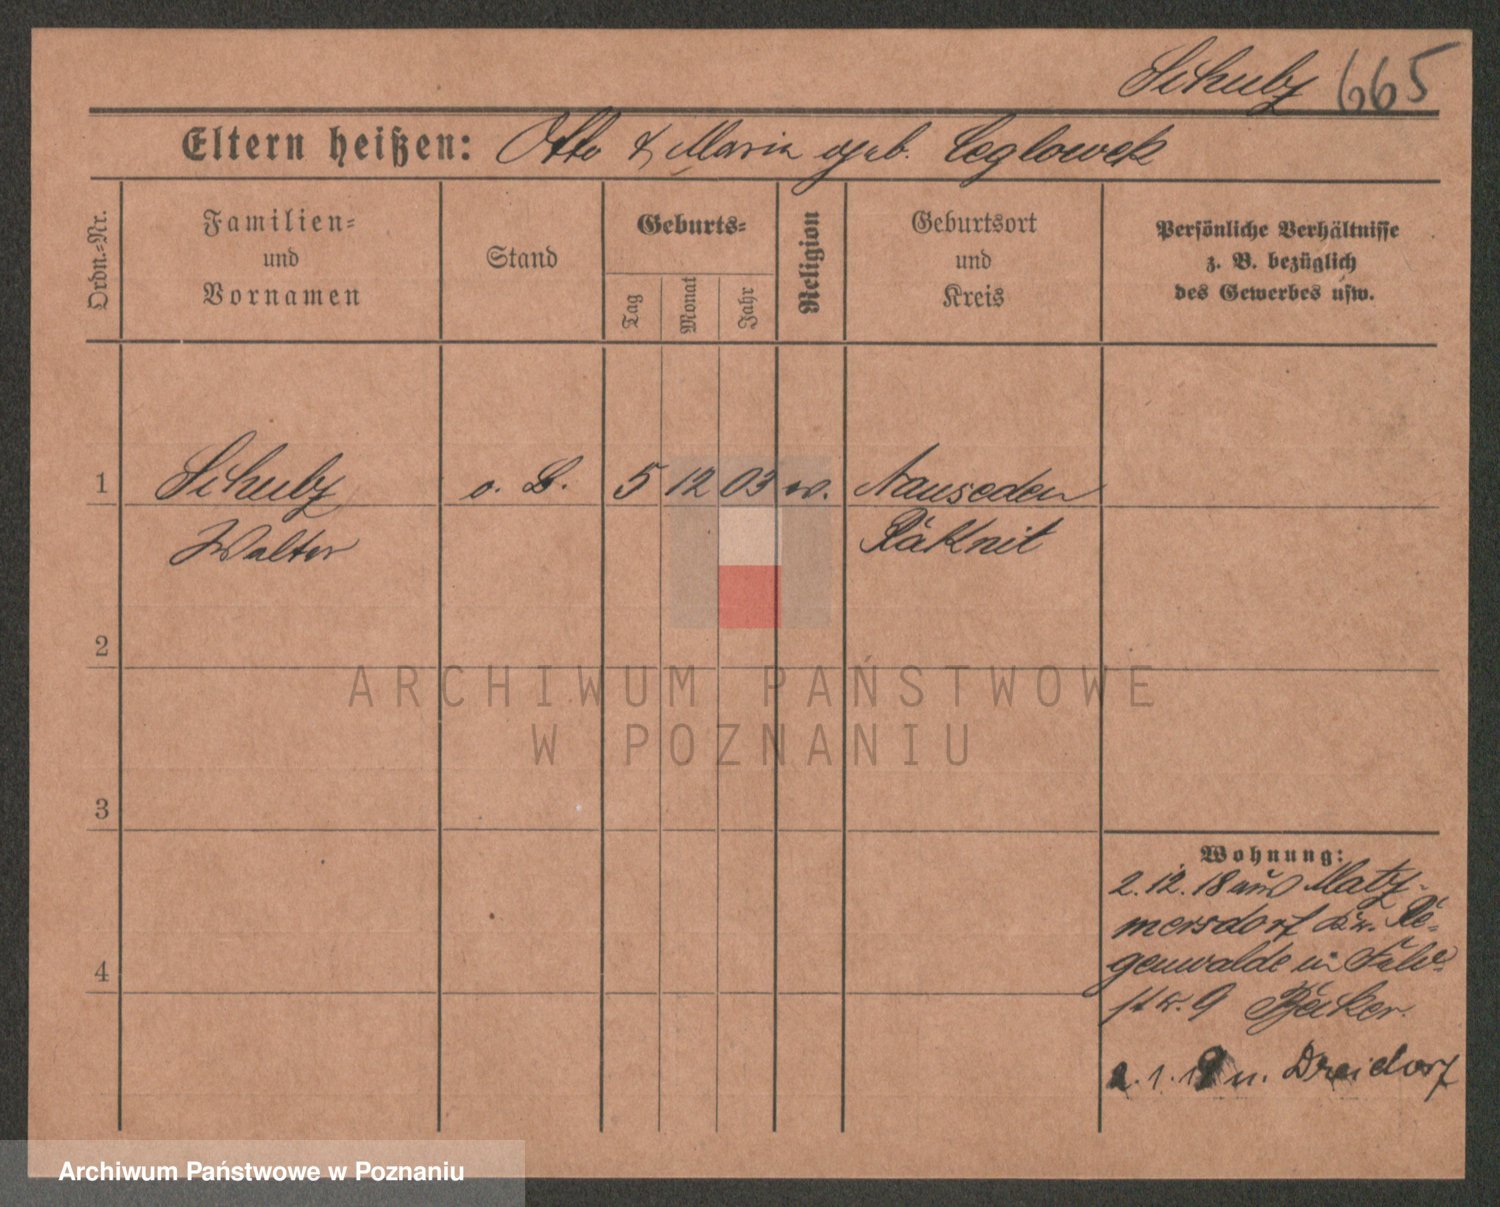 Schulz 665
Eltern heißen: Otto & Maria geb. Ceglowek
Ordn.-Nr.
Familien-
und
Vornamen
Stand
Geburts-
Tag
Monat
Jahr
Religion
Geburtsort
und
Kreis
Persönliche Verhältnisse
z. B. bezüglich
des Gewerbes usw.
1 Schulz o. B. 5 12 03 w. Nauseden
Walter
2
3
4
Wohnung:
2.12.18 aus Matz-
mersdorf Kr. Re-
genwalde in
9 Bäcker.
2.1.19 n. Dreidorf
ARCHIWUM PAŃSTWOWE
W POZNANIU
Archiwum Państwowe w Poznaniu